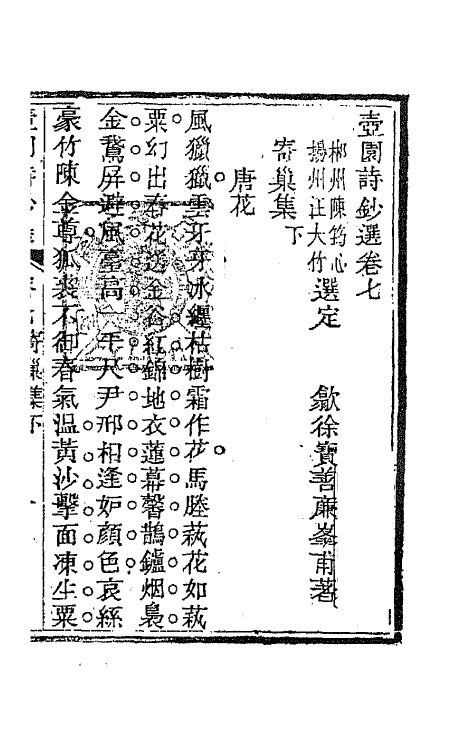 壺園詩鈔選卷七
郴州陳筠心
揚州汪大竹
選定
歙徐寶善廉峯甫著
寄巢集下
唐花
風獵獵雲牙牙冰纏枯樹霜作花馬塍蓺花如蓺
粟幻出春花遶金谷紅錦地衣蓮幕馨鵲鑪烟裊
金鵞屏避風臺高一千尺尹邢相逢妒顏色哀絲
豪竹陳金尊狐裘不御春氣溫黃沙擊面凍生粟
壺園詩鈔選
寄巢集下
一